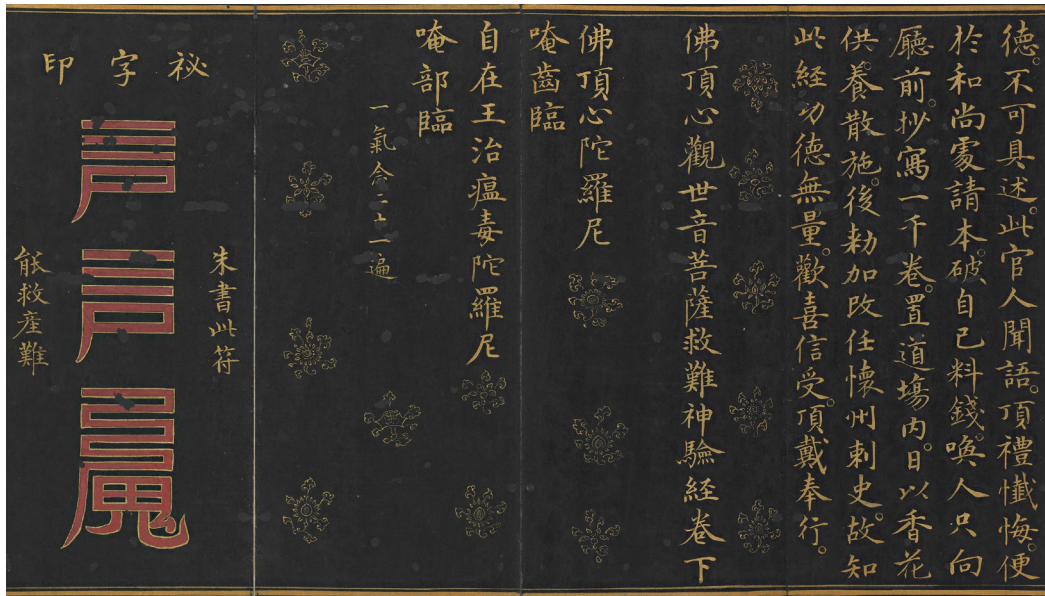 德。不可具述。此官人聞語。頂禮懺悔。便
於和尚處請本。破自己料錢。喚人只向
廳前。抄寫一千卷。置道場內。日以香花
供養散施。後勑加改任懷州刺史。故知
此經功德無量。歡喜信受。頂戴奉行。
佛頂心觀世音菩薩救難神驗經卷下
佛頂心陀羅尼
唵齒臨
自在王治瘟毒陀羅尼
唵部臨
一氣念二十一遍
祕字印
朱書此符
能救產難